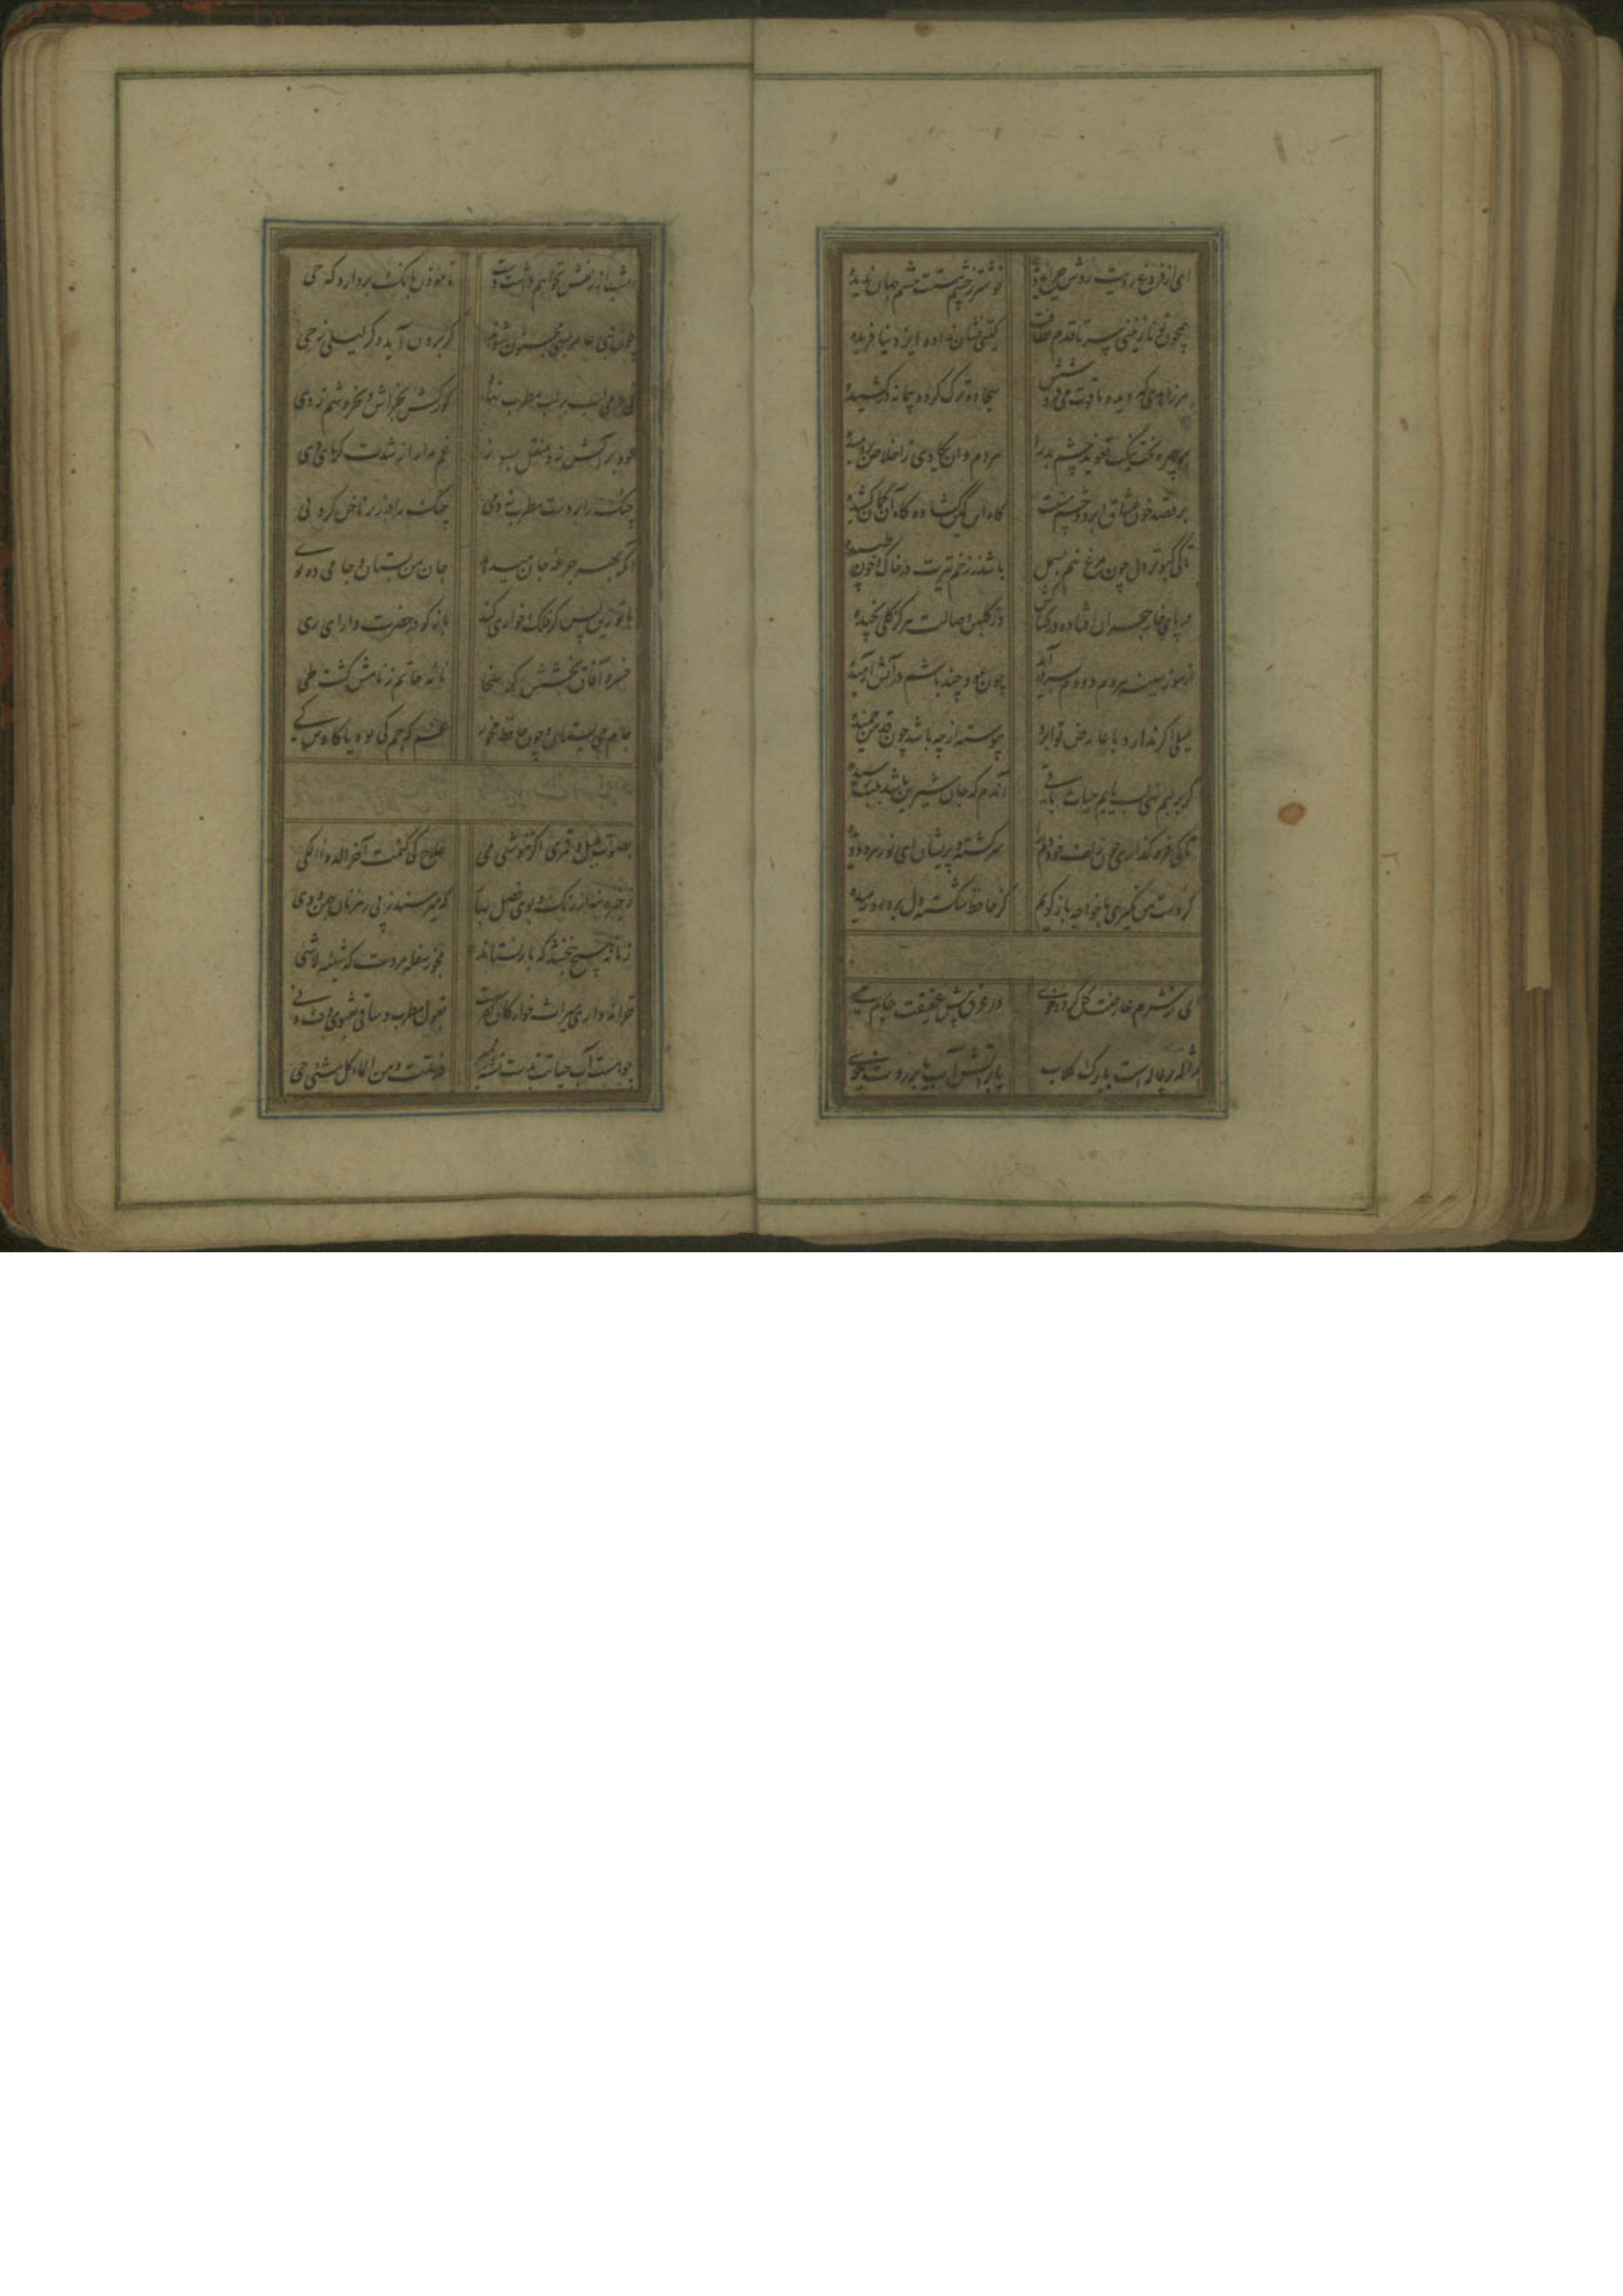 ای از فروغ رویت روشن چراغ دیده خوشتر ز چشم مستت چشم جهان ندیده
همچون تو نازنینی سر تا قدم لطافت گیتی نشان نداده ایزد نیافریده
هر زاهدی که دیده یاقوت می فروشش سجاده ترک کرده پیمانه در کشیده
بر قصد خون عشاق ابرو و چشم مستت گاه این کمین گشاده گاه آن کمان کشیده
تا کی کبوتر دل چون مرغ نیم بسمل باشد ز زخم تیرت در خاک و خون طپیده
در پای خار هجران افتاده در کشاکش وز گلبن وصالت هرگز گلی نچیده
از سوز سینه هر دم دودم بسر برآید چون عود چند باشم در آتش آرمیده
میلی اگر ندارد با عارض تو ابرو پیوسته از چه باشد چون قد من خمیده
گر بر لبم نهی لب یابم حیات باقی آندم که جان شیرین باشد بلب رسیده
تا کی فرو گذاری چون زلف خود دلم را سرگشته و پریشان ای نور هر دو دیده
گر دست من نگیری با خواجه باز گویم کز حافظ شکسته دل برده دیده
ای ز شرم عارضت گل کرده خوی در عرق پیش عقیقت جام می
ژاله بر لاله است یا برگ گلاب یا بر آتش آب یا بر روت خوی
امشب از زلفش نخواهم داشت دست تا مؤذن بانگ بردارد که حی
چون بنی عامر بسی مجنون شوند گر برون آید دگر لیلی ز حی
نی بر لب مطرب نهاد گوش بخراش و بخروشم ز وی
عود بر آتش نه و منقل بسوز غم مدار از شدت سرمای دی
چنگ را بر دست مطرب نه دمی چنگ را
آنکه بهر جرعه جان میدهد جان من بستان و جامی ده بوی
با تو زین پس گر فلک خواری کند باز گو در حضرت دارای ری
خسرو آفاق بخشش کز سخا نامه حاتم ز نامش گشت طی
جام می بستان و چون حافظ مخور غم که جم کی بود یا کاوس کی
بصوت بلبل و قمری اگر ننوشی می علاج کی کنمت آخر الدواء الکی
ذخیره بنه از رنگ و بوی فصل بهار که میرسند ز پی رهزنان بهمن و دی
زمانه هیچ نبخشد که باز نستاند مجو ز سفله مروت که شیئه لا شی
خزانه داری میراث خوارگان کفرست بقول مطرب و ساقی بفتوی دف و نی
چو هست آب حیاتت بدست تشنه ممیر فلا تمت و من الماء کل شیء حی